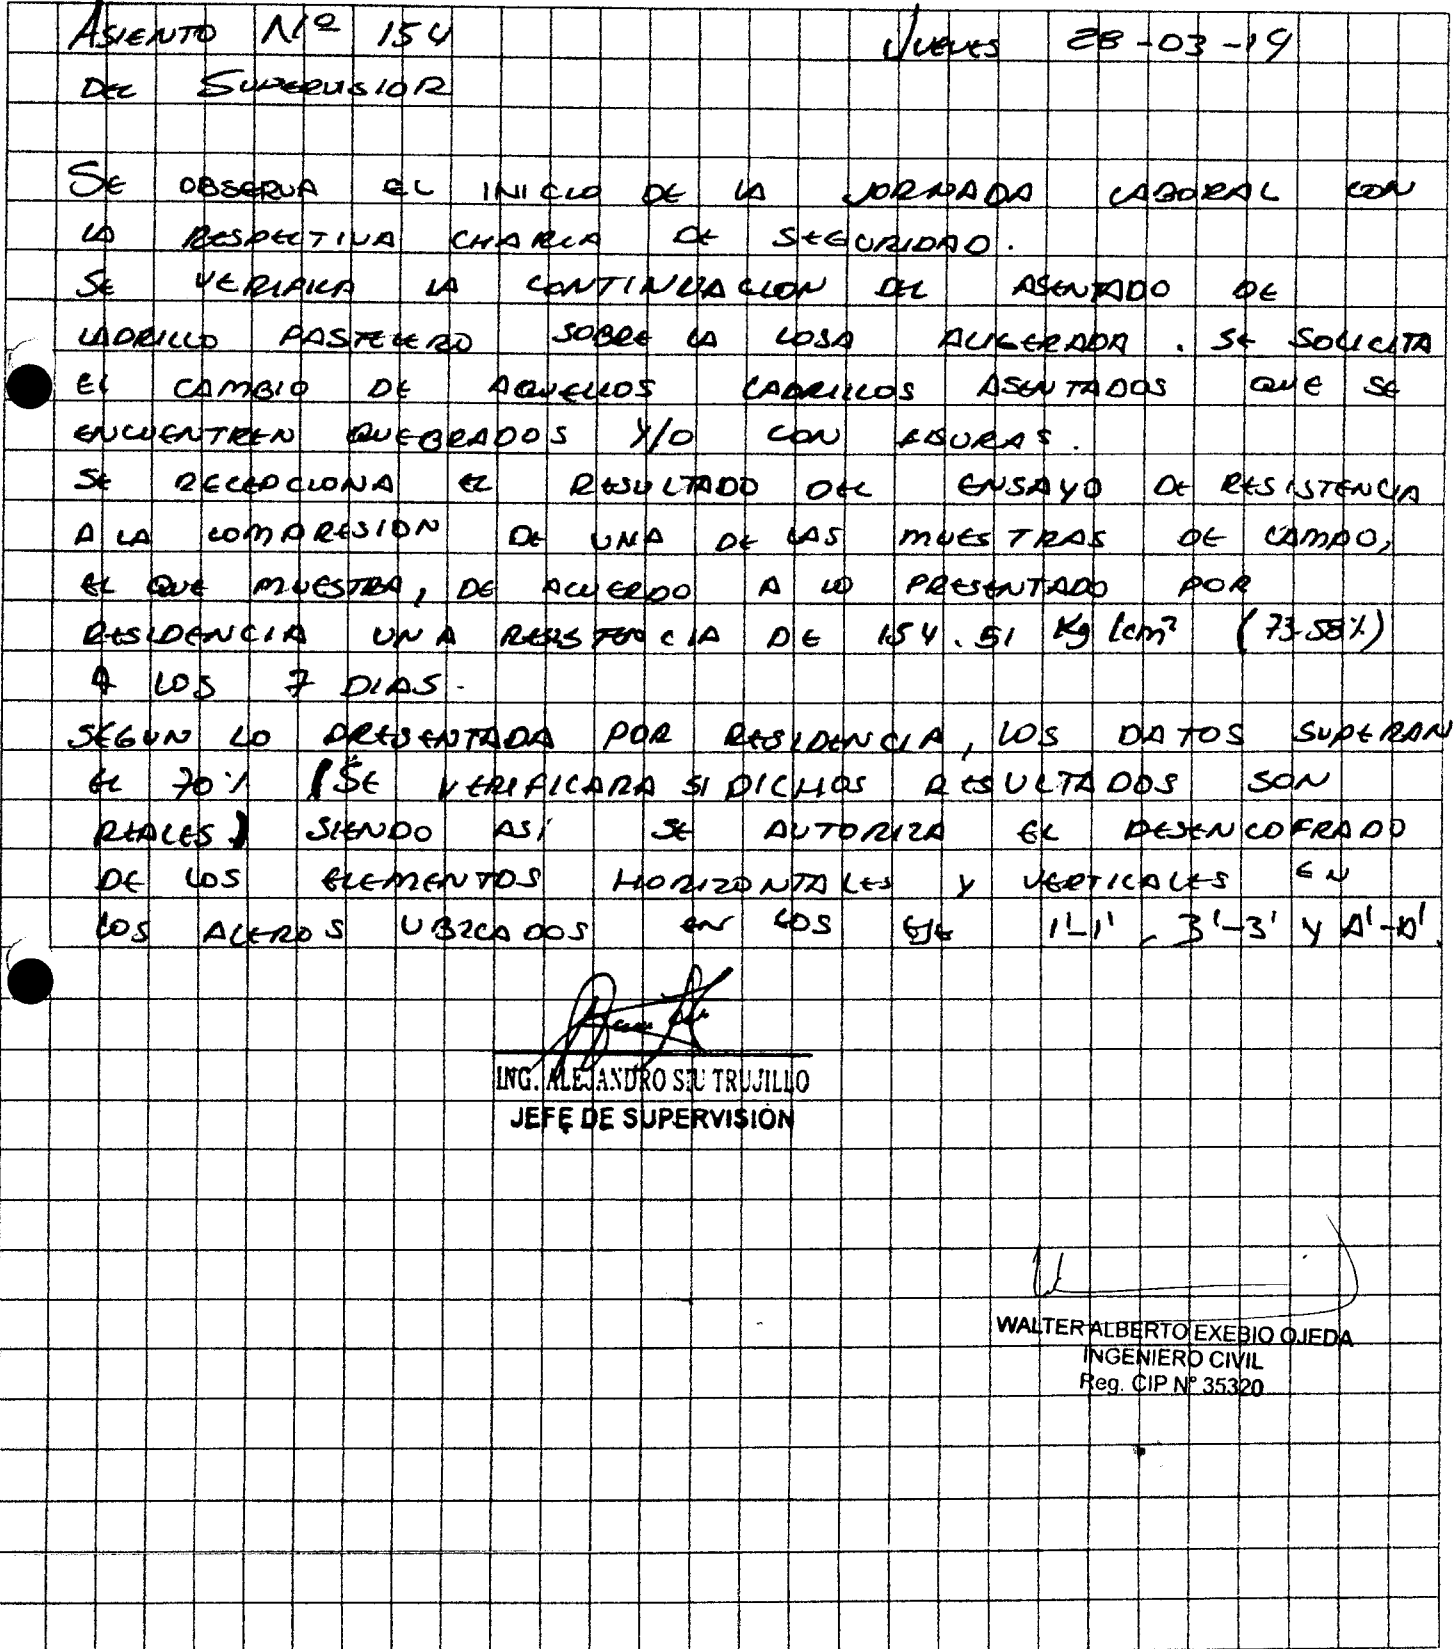 ASIENTO Nº 154 JUEVES 28-03-19
DEL SUPERVISIOR
SE OBSERVA EL INICIO DE LA JORNADA LABORAL CON
LA RESPECTIVA CHARLA DE SEGURIDAD.
SE VERIFICA LA CONTINUACION DEL ASENTADO DE
LADRILLO PASTELERO SOBRE LA LOSA ALIGERADA. SE SOLICITA
EL CAMBIO DE AQUELLOS LADRILLOS ASENTADOS QUE SE
ENCUENTREN QUEBRADOS Y/O CON
SE RECEPCIONA EL RESULTADO DEL ENSAYO DE RESISTENCIA
A LA COMPRESION DE UNA DE LAS MUESTRAS DE CAMPO,
EL QUE MUESTRA, DE ACUERDO A LO PRESENTADO POR
RESIDENCIA UNA RESISTENCIA DE 154.51 Kg/cm² (73.58%)
A LOS 7 DIAS.
SEGUN LO PRESENTADA POR RESIDENCIA, LOS DATOS SUPERAN
EL 70% (SE VERIFICARA SI DICHOS RESULTADOS SON
REALES) SIENDO ASÍ SE AUTORIZA EL DESENCOFRADO
DE LOS ELEMENTOS HORIZONTALES Y VERTICALES EN
LOS ALEROS UBICADOS EN LOS EJE 1'-1', 3'-3' Y A'-A'.
ING. ALEJANDRO SIU TRUJILLO
JEFE DE SUPERVISIÓN
WALTER ALBERTO EXEBIO OJEDA
INGENIERO CIVIL
Reg. CIP N° 35320